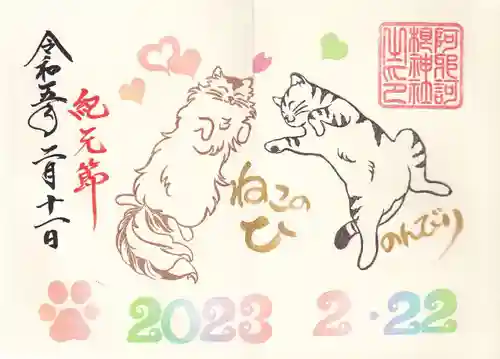 令和五年 二月十一日
紀元節
ねこの
ひ
のんびり
阿邪訶
根神社
之印
2023 2・22